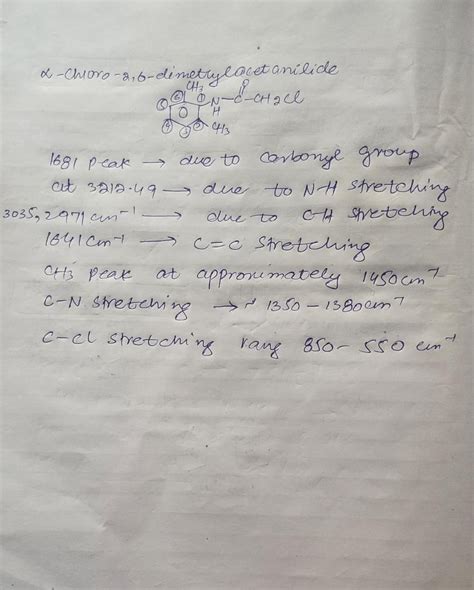 α-chloro-2,6-dimethylacetanilide
CH3 O
⑤ ⑥ ① N-C-CH2Cl
H
④ ③ CH3
1681 peak → due to carbonyl group
at 3212.49 → due to N-H stretching
3035, 2971 cm-1 → due to CH stretching
1641 cm-1 → C=C stretching
CH3 peak at approximately 1450cm-1
C-N stretching → ~ 1350-1380cm-1
C-Cl stretching rang 850-550 cm-1